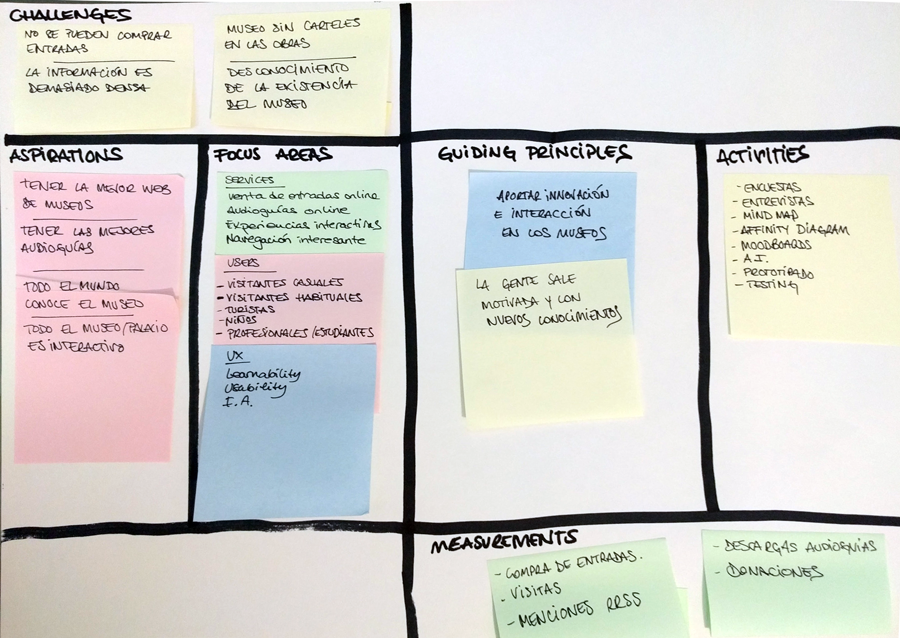 CHALLENGES
NO SE PUEDEN COMPRAR
ENTRADAS
LA INFORMACIÓN ES
DEMASIADO DENSA
MUSEO SIN CARTELES
EN LAS OBRAS
DESCONOCIMIENTO
DE LA EXISTENCIA
DEL MUSEO
ASPIRATIONS
TENER LA MEJOR WEB
DE MUSEOS
TENER LAS MEJORES
AUDIOGUÍAS
TODO EL MUNDO
CONOCE EL MUSEO
TODO EL MUSEO/PALACIO
ES INTERACTIVO
FOCUS AREAS
SERVICES
Venta de entradas online
Audioguías online
Experiencias interactivas
Navegación interesante
USERS
- VISITANTES CASUALES
- VISITANTES HABITUALES
- TURISTAS
- NIÑOS
- PROFESIONALES/ESTUDIANTES
UX
Learnability
Usability
I.A.
GUIDING PRINCIPLES
APORTAR INNOVACIÓN
E INTERACCIÓN
EN LOS MUSEOS
LA GENTE SALE
MOTIVADA Y CON
NUEVOS CONOCIMIENTOS
ACTIVITIES
- ENCUESTAS
- ENTREVISTAS
- MIND MAP
- AFFINITY DIAGRAM
- MOODBOARDS
- A.I.
- PROTOTIPADO
- TESTING
MEASUREMENTS
- COMPRA DE ENTRADAS.
- VISITAS
- MENCIONES RRSS
- DESCARGAS AUDIOGUIAS
- DONACIONES